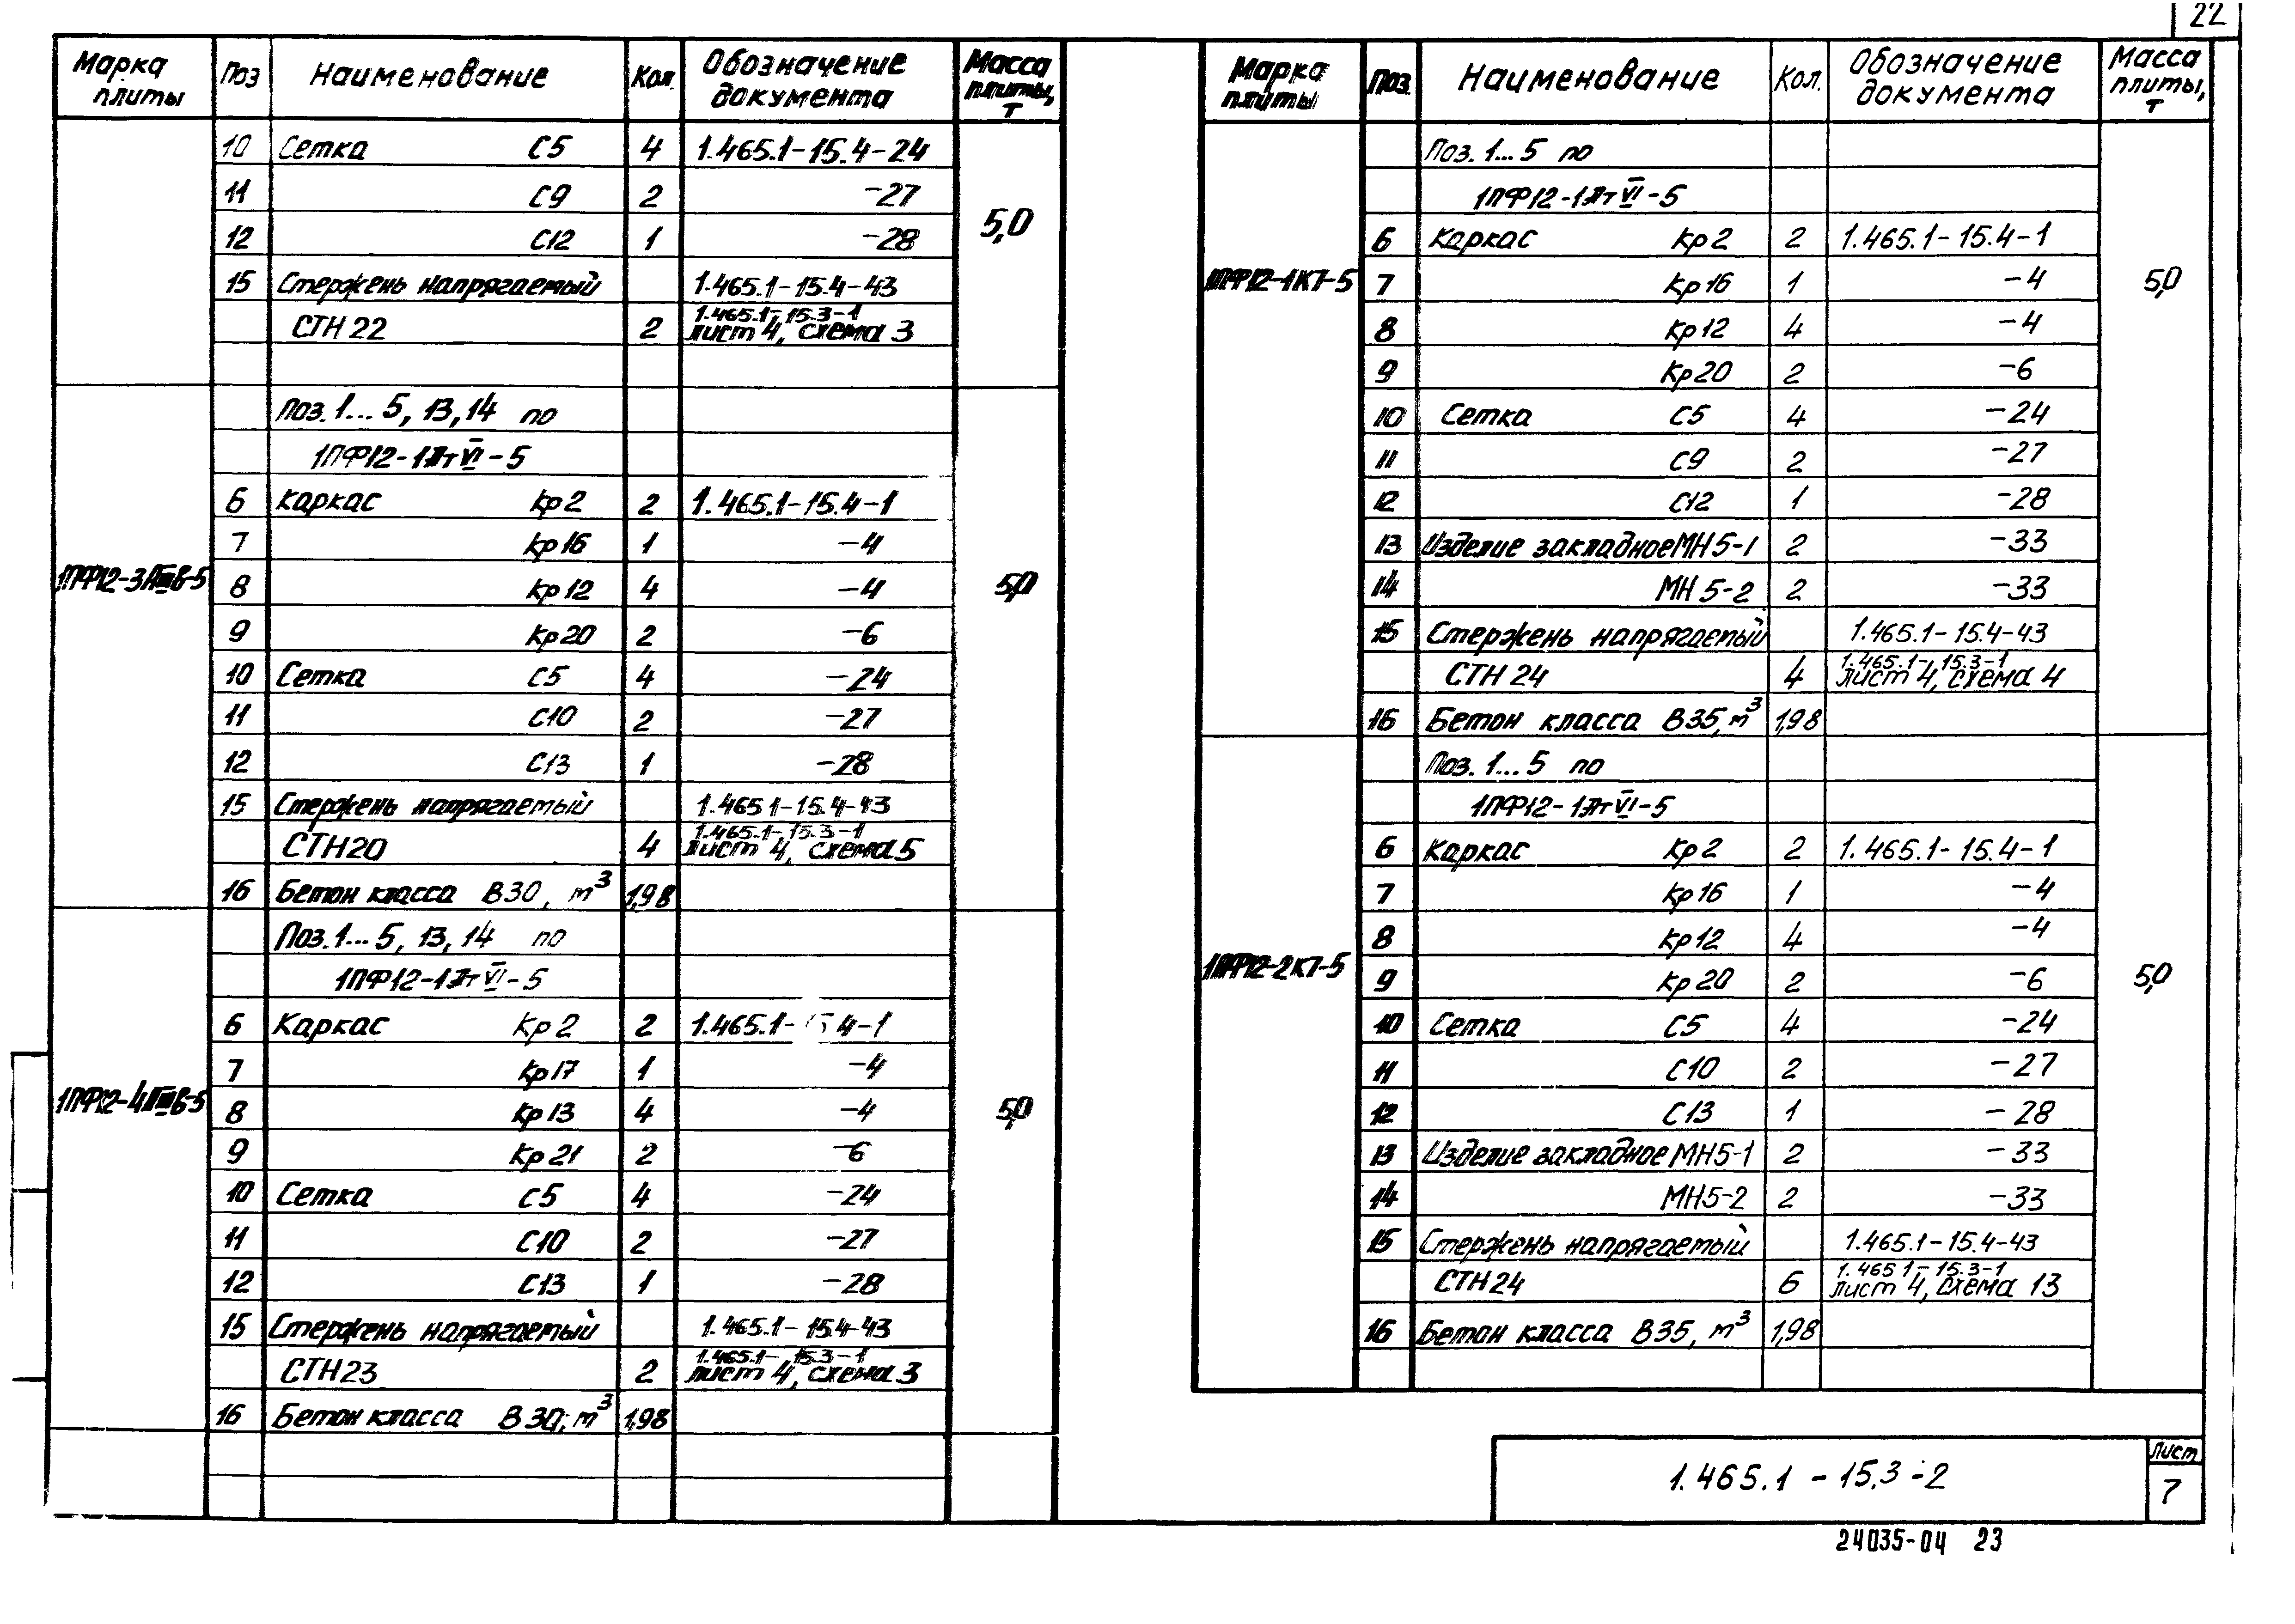 22
Марка плиты | Поз | Наименование | Кол. | Обозначение документа | Масса плиты, т
10 Сетка С5 4 1.465.1-15.4-24
11 С9 2 -27
12 С12 1 -28
5,0
15 Стержень напрягаемый 1.465.1-15.4-43
СТН 22 2 1.465.1-15.3-1 лист 4, схема 3
Поз. 1... 5, 13, 14 по
1ПФ12-1Ат VI-5
6 каркас Кр 2 2 1.465.1-15.4-1
7 Кр 16 1 -4
1ПФ12-3АIIIв-5
8 Кр 12 4 -4
5,0
9 Кр 20 2 -6
10 Сетка С5 4 -24
11 С10 2 -27
12 С13 1 -28
15 Стержень напрягаемый 1.465.1-15.4-43
СТН 20 4 1.465.1-15.3-1 лист 4, схема 5
16 Бетон класса В30, м³ 1,98
Поз. 1... 5, 13, 14 по
1ПФ12-1Ат VI-5
6 Каркас Кр 2 2 1.465.1-15.4-1
7 Кр 17 1 -4
1ПФ12-4АIIIв-5
8 Кр 13 4 -4
5,0
9 Кр 21 2 -6
10 Сетка С5 4 -24
11 С10 2 -27
12 С13 1 -28
15 Стержень напрягаемый 1.465.1-15.4-43
СТН 23 2 1.465.1-15.3-1 лист 4, схема 3
16 Бетон класса В30, м³ 1,98
Марка плиты | Поз. | Наименование | Кол. | Обозначение документа | Масса плиты, т
Поз. 1... 5 по
1ПФ12-1Ат VI-5
6 Каркас Кр 2 2 1.465.1-15.4-1
1ПФ12-1К7-5
7 Кр 16 1 -4
5,0
8 Кр 12 4 -4
9 Кр 20 2 -6
10 Сетка С5 4 -24
11 С9 2 -27
12 С12 1 -28
13 Изделие закладное МН 5-1 2 -33
14 МН 5-2 2 -33
15 Стержень напрягаемый 1.465.1-15.4-43
СТН 24 4 1.465.1-15.3-1 лист 4, схема 4
16 Бетон класса В35, м³ 1,98
Поз. 1... 5 по
1ПФ12-1Ат VI-5
6 Каркас Кр 2 2 1.465.1-15.4-1
7 Кр 16 1 -4
8 Кр 12 4 -4
1ПФ12-2К7-5
9 Кр 20 2 -6
5,0
10 Сетка С5 4 -24
11 С10 2 -27
12 С13 1 -28
13 Изделие закладное МН5-1 2 -33
14 МН5-2 2 -33
15 Стержень напрягаемый 1.465.1-15.4-43
СТН 24 6 1.465.1-15.3-1 лист 4, схема 13
16 Бетон класса В35, м³ 1,98
1.465.1-15.3-2
Лист
7
24035-04 23